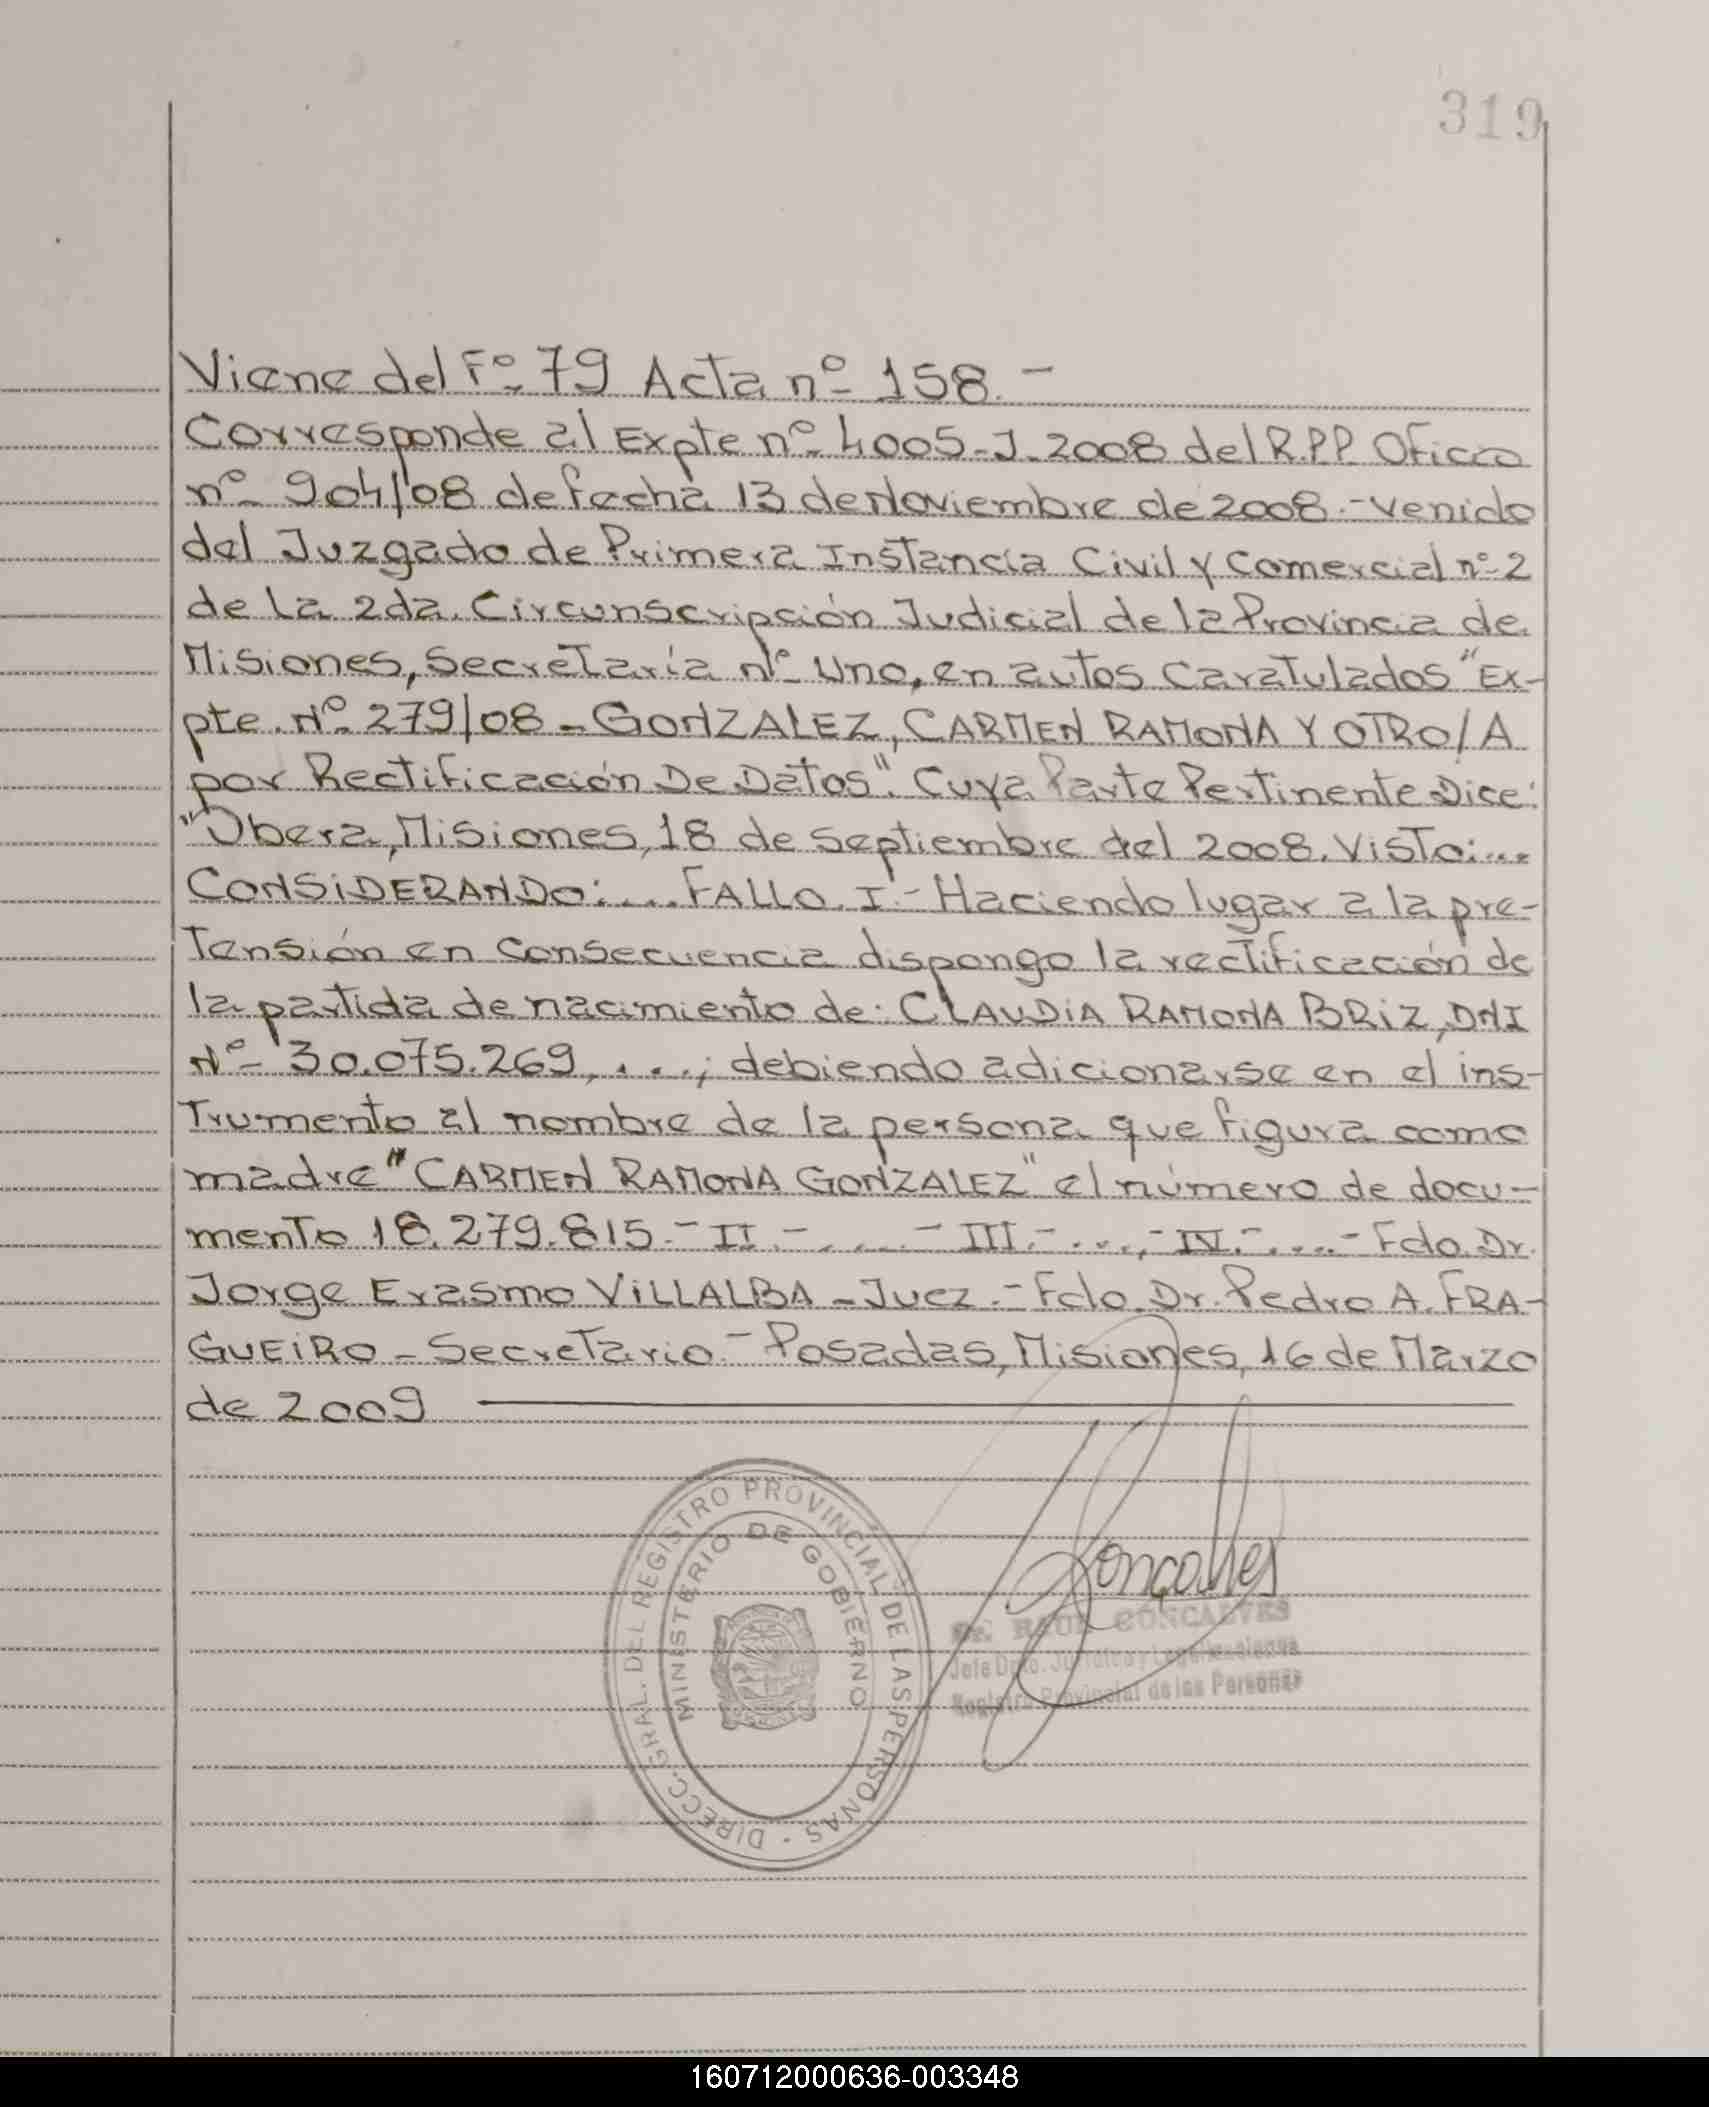 319
Viene del Fº 79 Acta nº 158.-
Corresponde al Expte nº 4005-J-2008 del R.P.P. Oficio
nº 904/08 de fecha 13 de Noviembre de 2008.- venido
del Juzgado de Primera Instancia Civil y Comercial nº 2
de la 2da. Circunscripción Judicial de la Provincia de
Misiones, Secretaría nº Uno, en autos Caratulados "Ex-
pte. Nº 279/08 - GONZALEZ, CARMEN RAMONA Y OTRO/A
por Rectificación De Datos". Cuya Parte Pertinente Dice:
"Obera, Misiones, 18 de Septiembre del 2008. Visto:...
CONSiDERANDO:.... FALLO. I.- Haciendo lugar a la pre-
Tensión en consecuencia dispongo la rectificación de
la partida de nacimiento de: CLAUDiA RAMONA BRiZ, DNI
Nº 30.075.269, ....; debiendo adicionarse en el ins-
Trumento al nombre de la persona que figura como
madre "CARMEN RAMONA GONZALEZ" el número de docu-
mento 18.279.815.- II.- .... - III.- ....,- IV.- ....- Fdo. Dr.
Jorge Erasmo ViLLALBA - Juez.- Fdo. Dr. Pedro A. FRA-
GUEiRO - Secretario.- Posadas, Misiones, 16 de Marzo
de 2009
DIRECC. GRAL. DEL REGISTRO PROVINCIAL DE LAS PERSONAS
MINISTERIO DE GOBIERNO
Gonçalves
Dr. RAUL GONÇALVES
Jefe Dpto. Jurídico y
Registro Provincial de las Personas
160712000636-003348